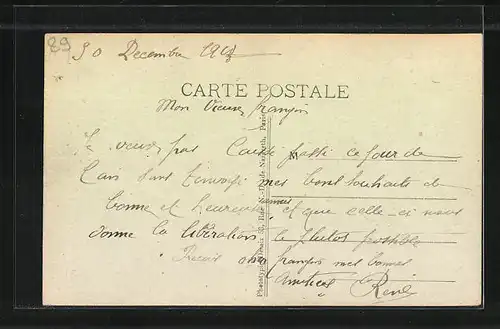 89
30 Decembre 1917
CARTE POSTALE
Mon Vieux françois
Je veux pas laisser passer ce jour de
l'an sans t'envoyer mes bons souhaits de
bonne et heureuse année, et que celle-ci nous
donne la libération le plutot possible
Recois cher françois mes bonnes
amities René
Paris